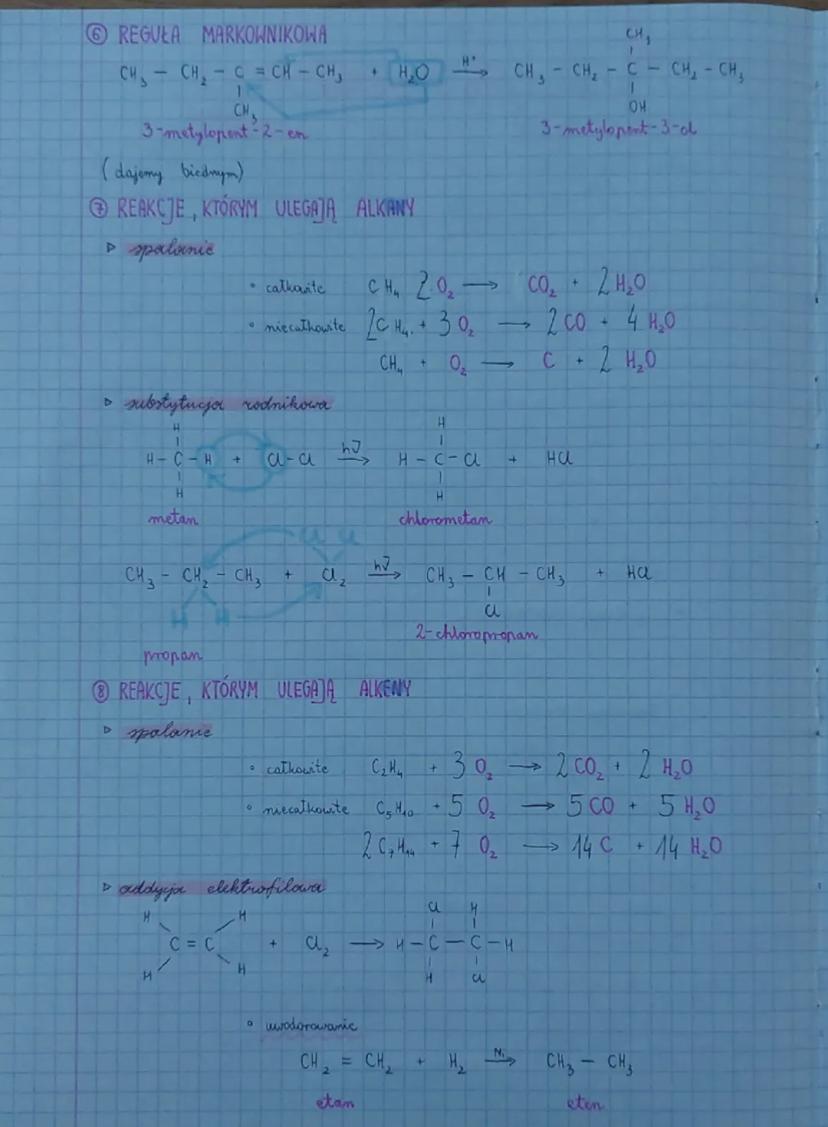 ⑥ REGUŁA MARKOWNIKOWA
CH₃
CH₃ — CH₂ — C = CH — CH₃ + H₂O H⁺→ CH₃ — CH₂ — C — CH₂ — CH₃
CH₃ OH
3-metylopent-2-en 3-metylopent-3-ol
(dajemy biednym)
⑦ REAKCJE, KTÓRYM ULEGAJĄ ALKANY
▹ spalanie
• całkowite CH₄ 2 O₂ → CO₂ + 2 H₂O
• niecałkowite 2CH₄ + 3 O₂ → 2 CO + 4 H₂O
CH₄ + O₂ → C + 2 H₂O
▹ substytucja rodnikowa
H H
H - C - H + Cl - Cl hν→ H - C - Cl + HCl
H H
metan chlorometan
Cl Cl
CH₃ - CH₂ - CH₃ + Cl₂ hν→ CH₃ - CH - CH₃ + HCl
H H Cl
2-chloropropan
propan
⑧ REAKCJE, KTÓRYM ULEGAJĄ ALKENY
▹ spalanie
• całkowite C₂H₄ + 3 O₂ → 2 CO₂ + 2 H₂O
• niecałkowite C₅H₁₀ + 5 O₂ → 5 CO + 5 H₂O
2 C₇H₁₄ + 7 O₂ → 14 C + 14 H₂O
▹ addycja elektrofilowa
H H Cl H
C = C + Cl₂ → H - C - C - H
H H H Cl
• uwodorowanie
CH₂ = CH₂ + H₂ Ni→ CH₃ — CH₃
etan eten